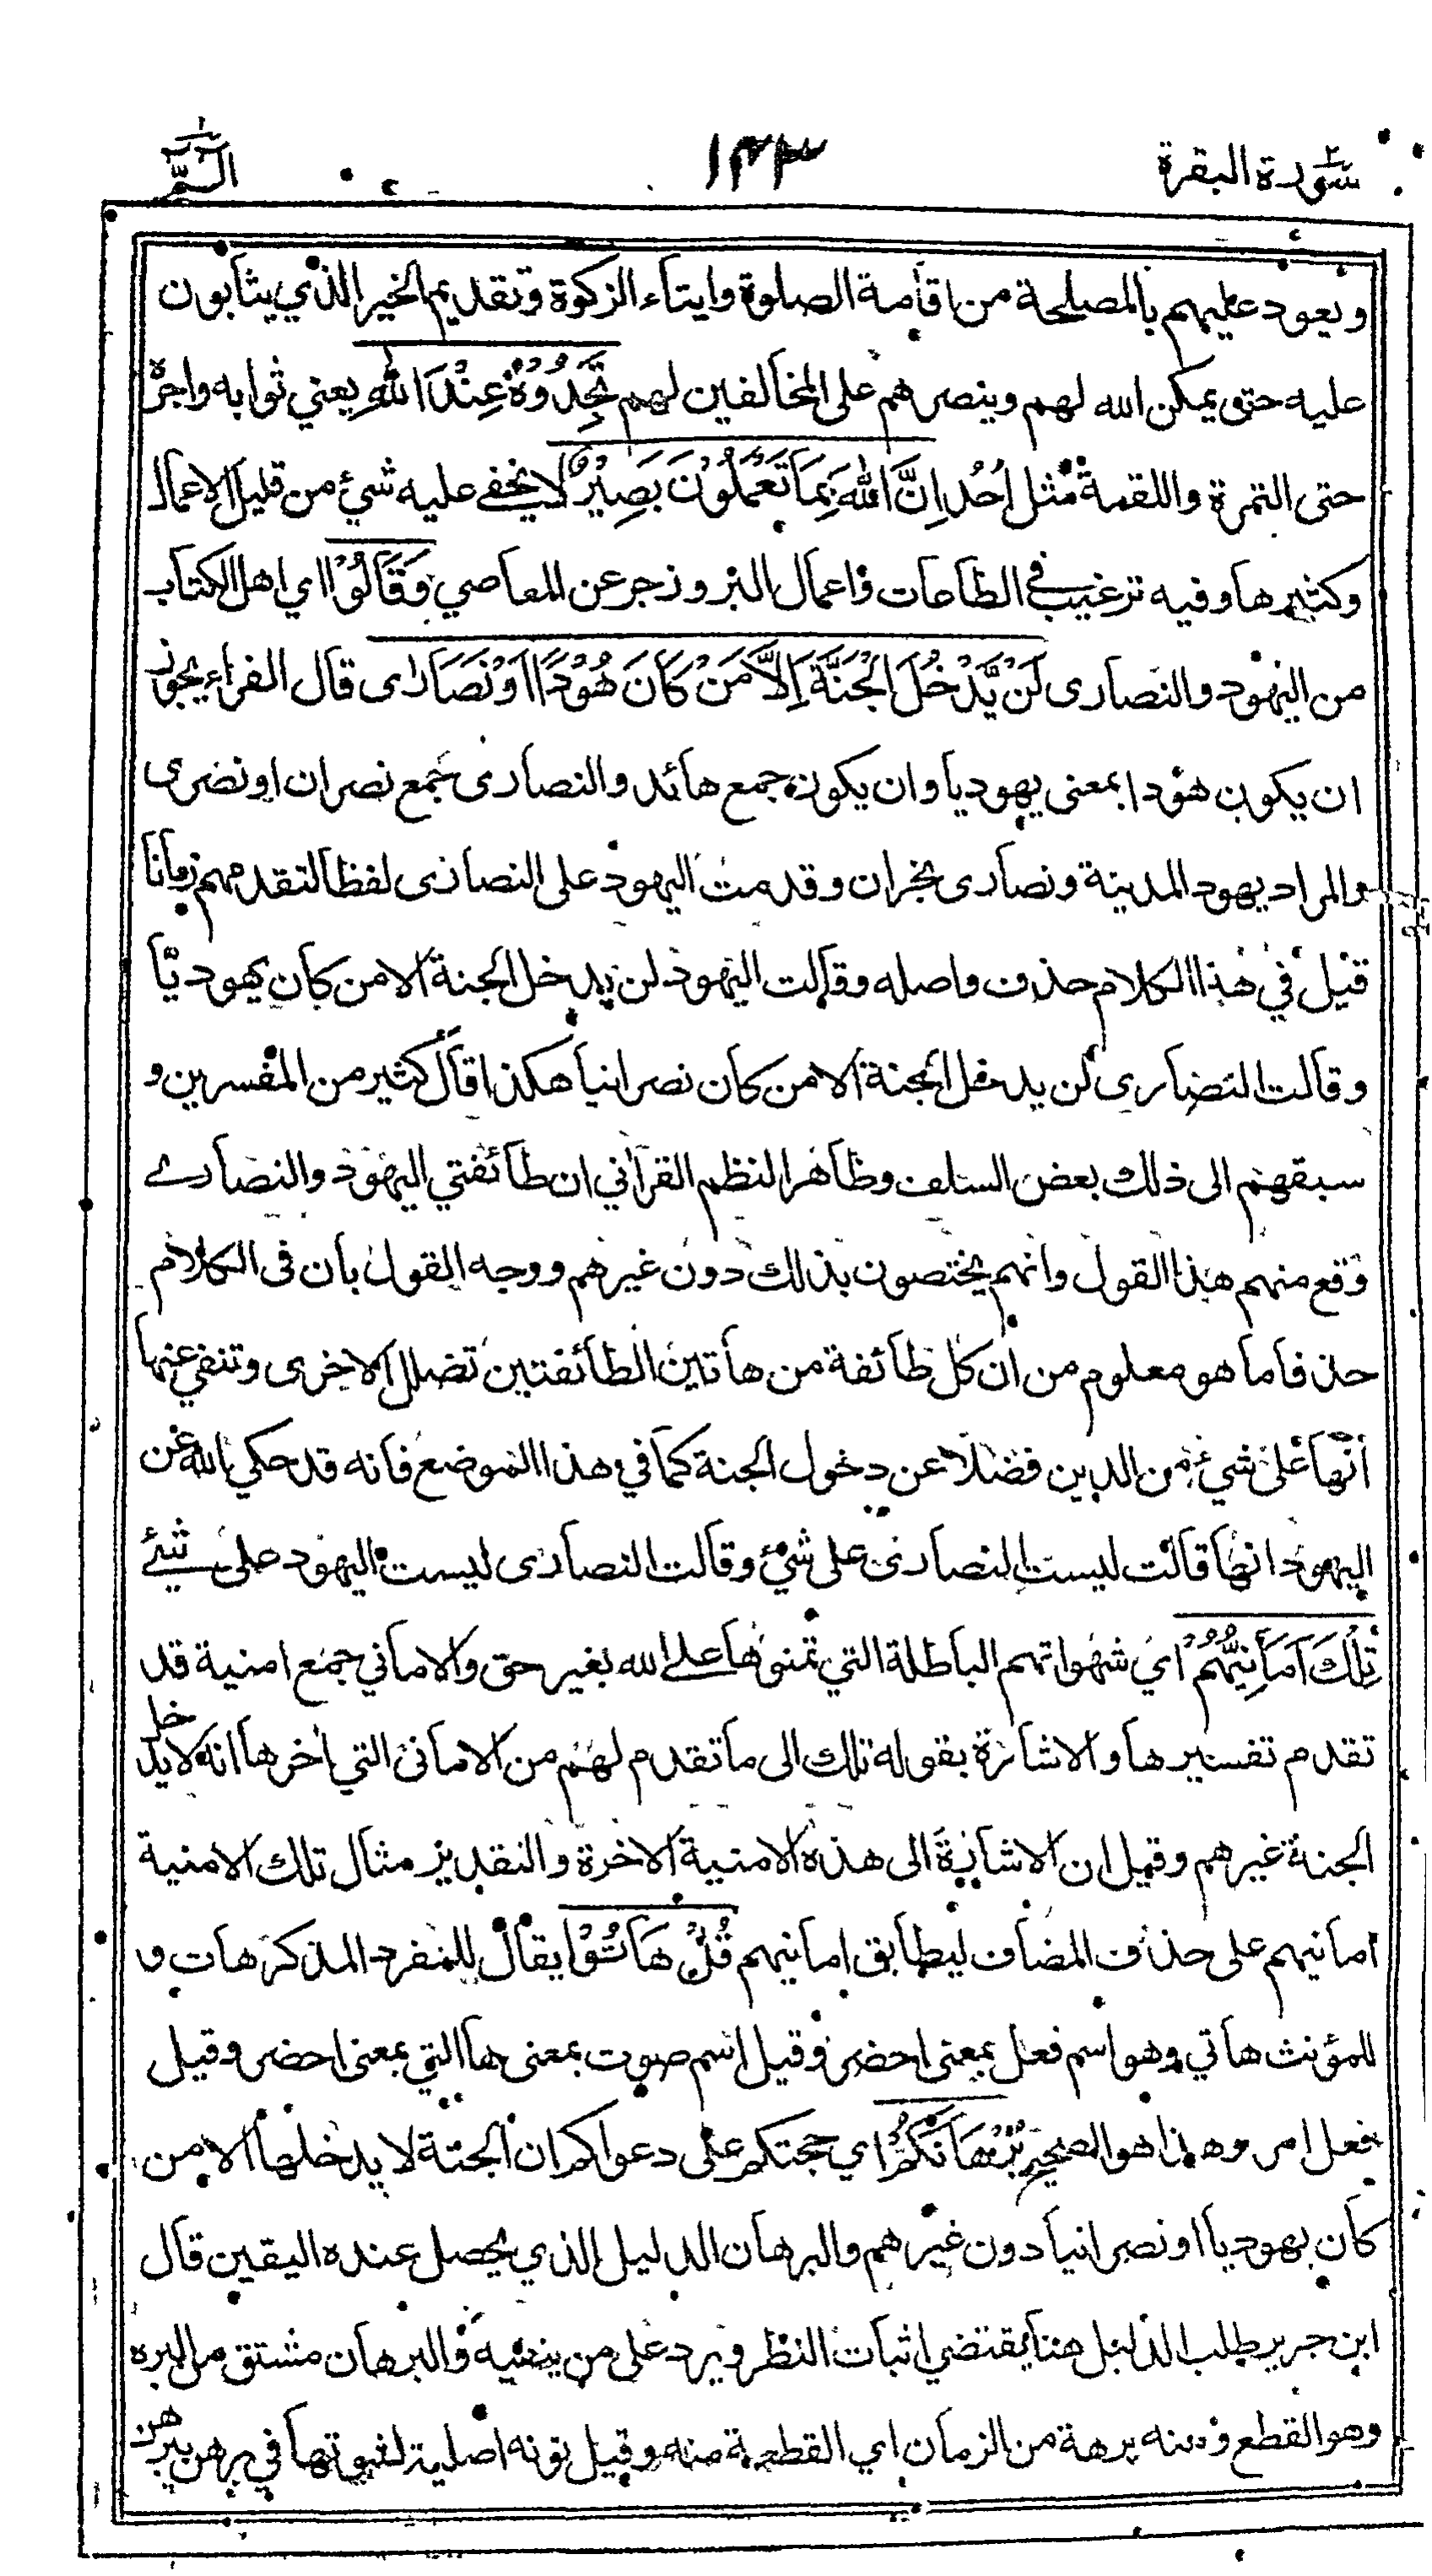 سورة البقرة
١٤٣
الم
ويعود عليهم بالمصلحة من اقامة الصلوة وايتاء الزكوة وتقديم الخير الذي يثابون
عليه حتى يمكن الله لهم وينصرهم على المخالفين لهم تَجِدُوْهُ عِنْدَ اللهِ يعني ثوابه واجره
حتى التمرة واللقمة مثل اُحُد اِنَّ اللهَ بِمَا تَعْمَلُوْنَ بَصِيْرٌ لا يخفى عليه شيئ من قليل الاعمال
وكثيرها وفيه ترغيب في الطاعات واعمال البر وزجر عن المعاصي وَقَالُوْا اي اهل الكتاب
من اليهود والنصارى لَنْ يَّدْخُلَ الْجَنَّةَ اِلَّا مَنْ كَانَ هُوْدًا اَوْ نَصَارٰى قال الفراء يجوز
ان يكون هودا بمعنى يهوديا وان يكون جمع هائد والنصارى جمع نصران او نصرى
والمراد يهود المدينة ونصارى نجران وقدمت اليهود على النصارى لفظا لتقدمهم زمانا
قيل في هذا الكلام حذف واصله وقالت اليهود لن يدخل الجنة الا من كان يهوديّا
وقالت النصارى لن يدخل الجنة الا من كان نصرانيا هكذا قال كثير من المفسرين و
سبقهم الى ذلك بعض السلف وظاهر النظم القرآني ان طائفتي اليهود والنصارے
وقع منهم هذا القول وانهم يختصون بذلك دون غيرهم ووجه القول بان في الكلام
حذفا ما هو معلوم من ان كل طائفة من هاتين الطائفتين تضلل الاخرى وتنفي عنها
انها على شيئ من الدين فضلا عن دخول الجنة كما في هذا الموضع فانه قد حكي الله عن
اليهود انها قالت ليست النصارى على شيئ وقالت النصارى ليست اليهود على شيئ
تِلْكَ اَمَانِيُّهُمْ اي شهواتهم الباطلة التي تمنوها على الله بغير حق والاماني جمع امنية قد
تقدم تفسيرها والاشارة بقوله تلك الى ما تقدم لهم من الاماني التي اخرها انه لا يدخل
الجنة غيرهم وقيل ان الاشارة الى هذه الامنية الاخرة والتقدير مثال تلك الامنية
امانيهم على حذف المضاف ليطابق امانيهم قُلْ هَاتُوْا يقال للمفرد المذكر هات و
للمؤنث هاتي وهو اسم فعل بمعنى احضر وقيل اسم صوت بمعنى ها التي بمعنى احضر وقيل
فعل امر وهذا هو الصحيح بُرْهَانَكُمْ اي حجتكم على دعواكم ان الجنة لا يدخلها الا من
كان يهوديا او نصرانيا دون غيرهم والبرهان الدليل الذي يحصل عنده اليقين قال
ابن جرير طلب الدليل هنا يقتضي اثبات النظر ويرد على من ينفيه والبرهان مشتق من البره
وهو القطع ومنه برهة من الزمان اي القطعة منه وقيل نونه اصلية لثبوتها في برهن يبرهن